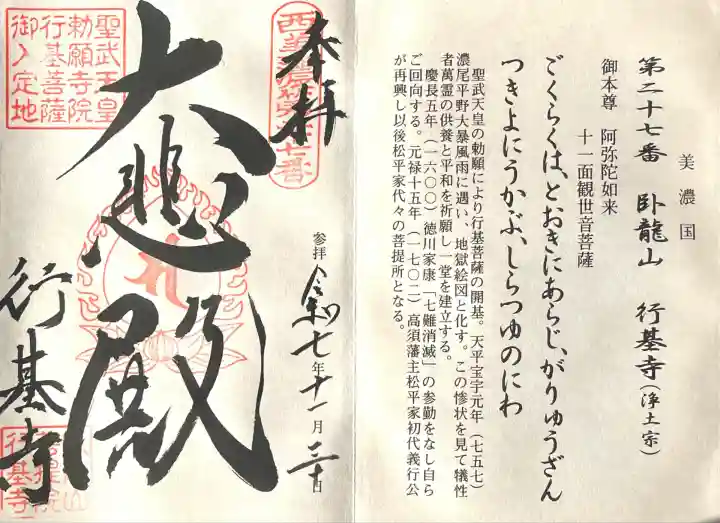 美濃国
第二十七番 臥龍山 行基寺(浄土宗)
御本尊 阿弥陀如来
十一面観世音菩薩
ごくらくは、とおきにあらじ、がりゅうざん
つきよにうかぶ、しらつゆのにわ
聖武天皇の勅願により行基菩薩の開基。天平宝字元年(七五七)
濃尾平野大暴風雨に遇い、地獄絵図と化す。この惨状を見て犠牲
者萬霊の供養と平和を祈願し一堂を建立する。
慶長五年(一六〇〇)徳川家康「七難消滅」の参勤をなし自ら
ご回向する。元禄十五年(一七〇二)高須藩主松平家初代義行公
が再興し以後松平家代々の菩提所となる。
奉拝
西美濃
七番
参拝 令和七年十一月三十日
大悲殿
行基寺
聖武天皇
勅願寺院
行基菩薩
御入定地
行基寺